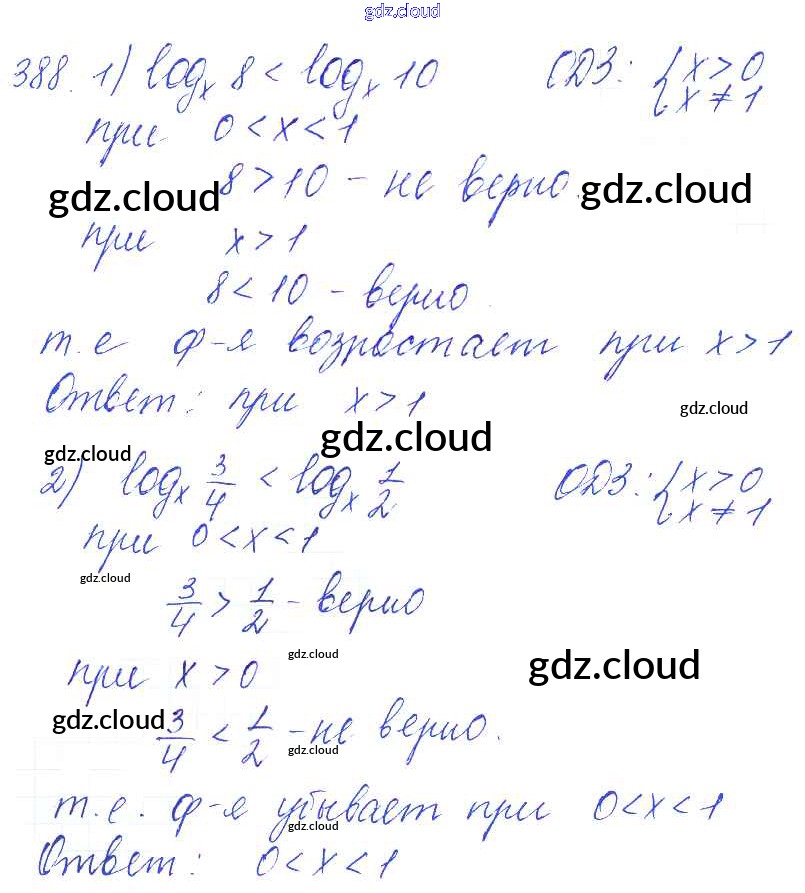 gdz.cloud
388. 1) log_x 8 < log_x 10 ОДЗ: { x > 0
x ≠ 1
при 0 < x < 1
8 > 10 – не верно.
gdz.cloud gdz.cloud
при x > 1
8 < 10 – верно.
т.е ф-я возростает при x > 1
Ответ: при x > 1
gdz.cloud
gdz.cloud gdz.cloud
2) log_x 3/4 < log_x 1/2 ОДЗ: { x > 0
x ≠ 1
при 0 < x < 1
gdz.cloud
3/4 > 1/2 – верно
gdz.cloud
при x > 0 gdz.cloud
gdz.cloud
3/4 < 1/2 – не верно.
gdz.cloud
т.е. ф-я убывает при 0 < x < 1
gdz.cloud
Ответ: 0 < x < 1
gdz.cloud